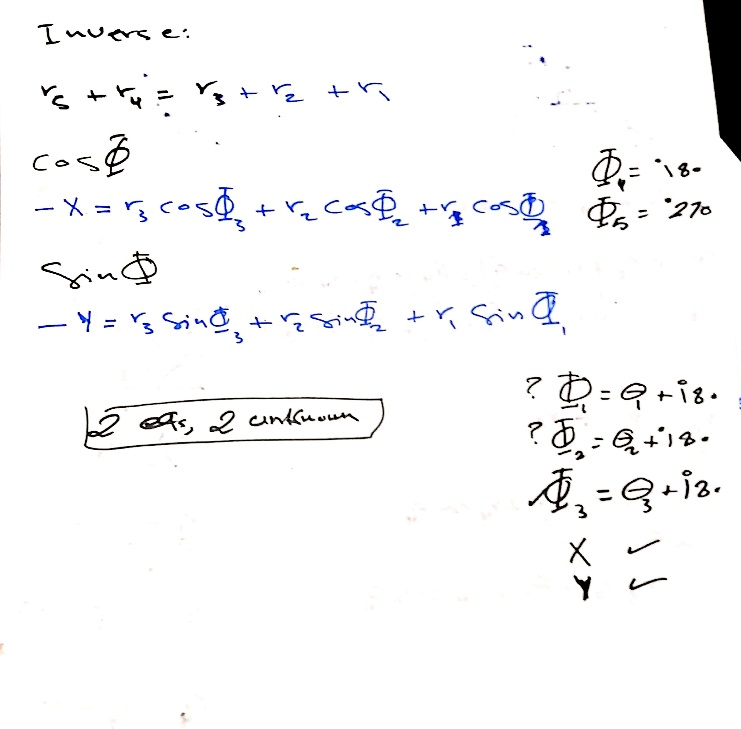 Inverse:
r₅ + r₄ = r₃ + r₂ + r₁
cosΦ
-X = r₃ cosΦ₃ + r₂ cosΦ₂ + r₁ cosΦ₁
Φ₄ = °180
Φ₅ = °270
SinΦ
-Y = r₃ SinΦ₃ + r₂ SinΦ₂ + r₁ SinΦ₁
2 eqs, 2 unknown
? Φ₁ = θ₁ + °180
? Φ₂ = θ₂ + °180
Φ₃ = θ₃ + °180
X ✓
Y ✓